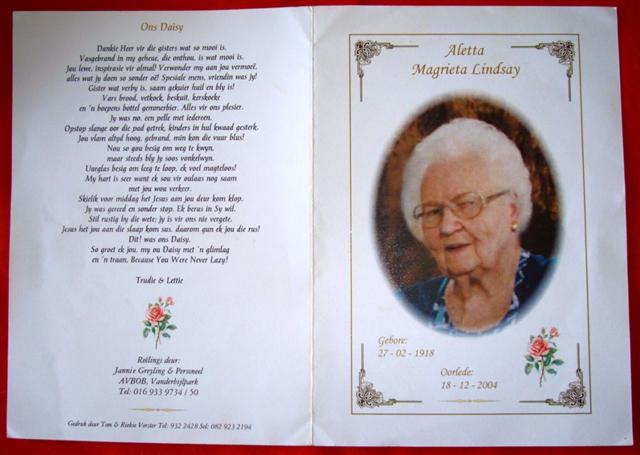 Ons Daisy
Dankie Heer vir die gisters wat so mooi is.
Vasgebrand in my geheue, die onthou, is wat mooi is.
Jou lewe, inspirasie vir almal! Verwonder my aan jou vermoë,
alles wat jy doen so sonder oë! Spesiale mens, vriendin was jy!
Gister wat verby is, saam gekuier huil en bly is!
Vars brood, vetkoek, beskuit, kerskoeke
en 'n boepens bottel gemmerbier. Alles vir ons plesier.
Jy was no. een pelle met iedereen.
Opstop slange oor die pad getrek, kinders in hul kwaad gesterk.
Jou vlam altyd hoog, gebrand, min kon die vuur blus!
Nou so gou besig om weg te kwyn,
maar steeds bly jy soos vonkelwyn.
Uurglas besig om leeg te loop, ek voel magteloos!
My hart is seer want ek sou vir oulaas nog saam
met jou wou verkeer.
Skielik voor middag het Jesus aan jou deur kom klop.
Jy was gereed en sonder stop. Ek berus in Sy wil.
Stil rustig by die wete; jy is vir ons nie vergete.
Jesus het jou aan die slaap kom sus, daarom gun ek jou die rus!
Dit! was ons Daisy.
So groet ek jou, my ou Daisy met 'n glimlag
en 'n traan, Because You Were Never Lazy!
Trudie & Lettie
Reëlings deur:
Jannie Greyling & Personeel
AVBOB, Vanderbijlpark
Tel: 016 933 9734 / 50
Gedruk deur Tom & Riekie Vorster Tel: 932 2428 Sel: 082 923 2194
Aletta
Magrieta Lindsay
Gebore:
27 - 02 - 1918
Oorlede:
18 - 12 - 2004